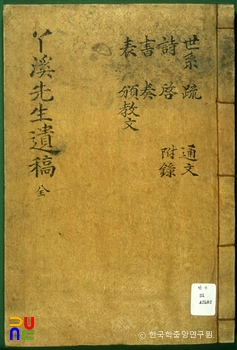 世系 疏 通文
詩 啓 附錄
書 奏
表 頒教文
丫溪先生遺稿 全
ⓒ 한국학중앙연구원